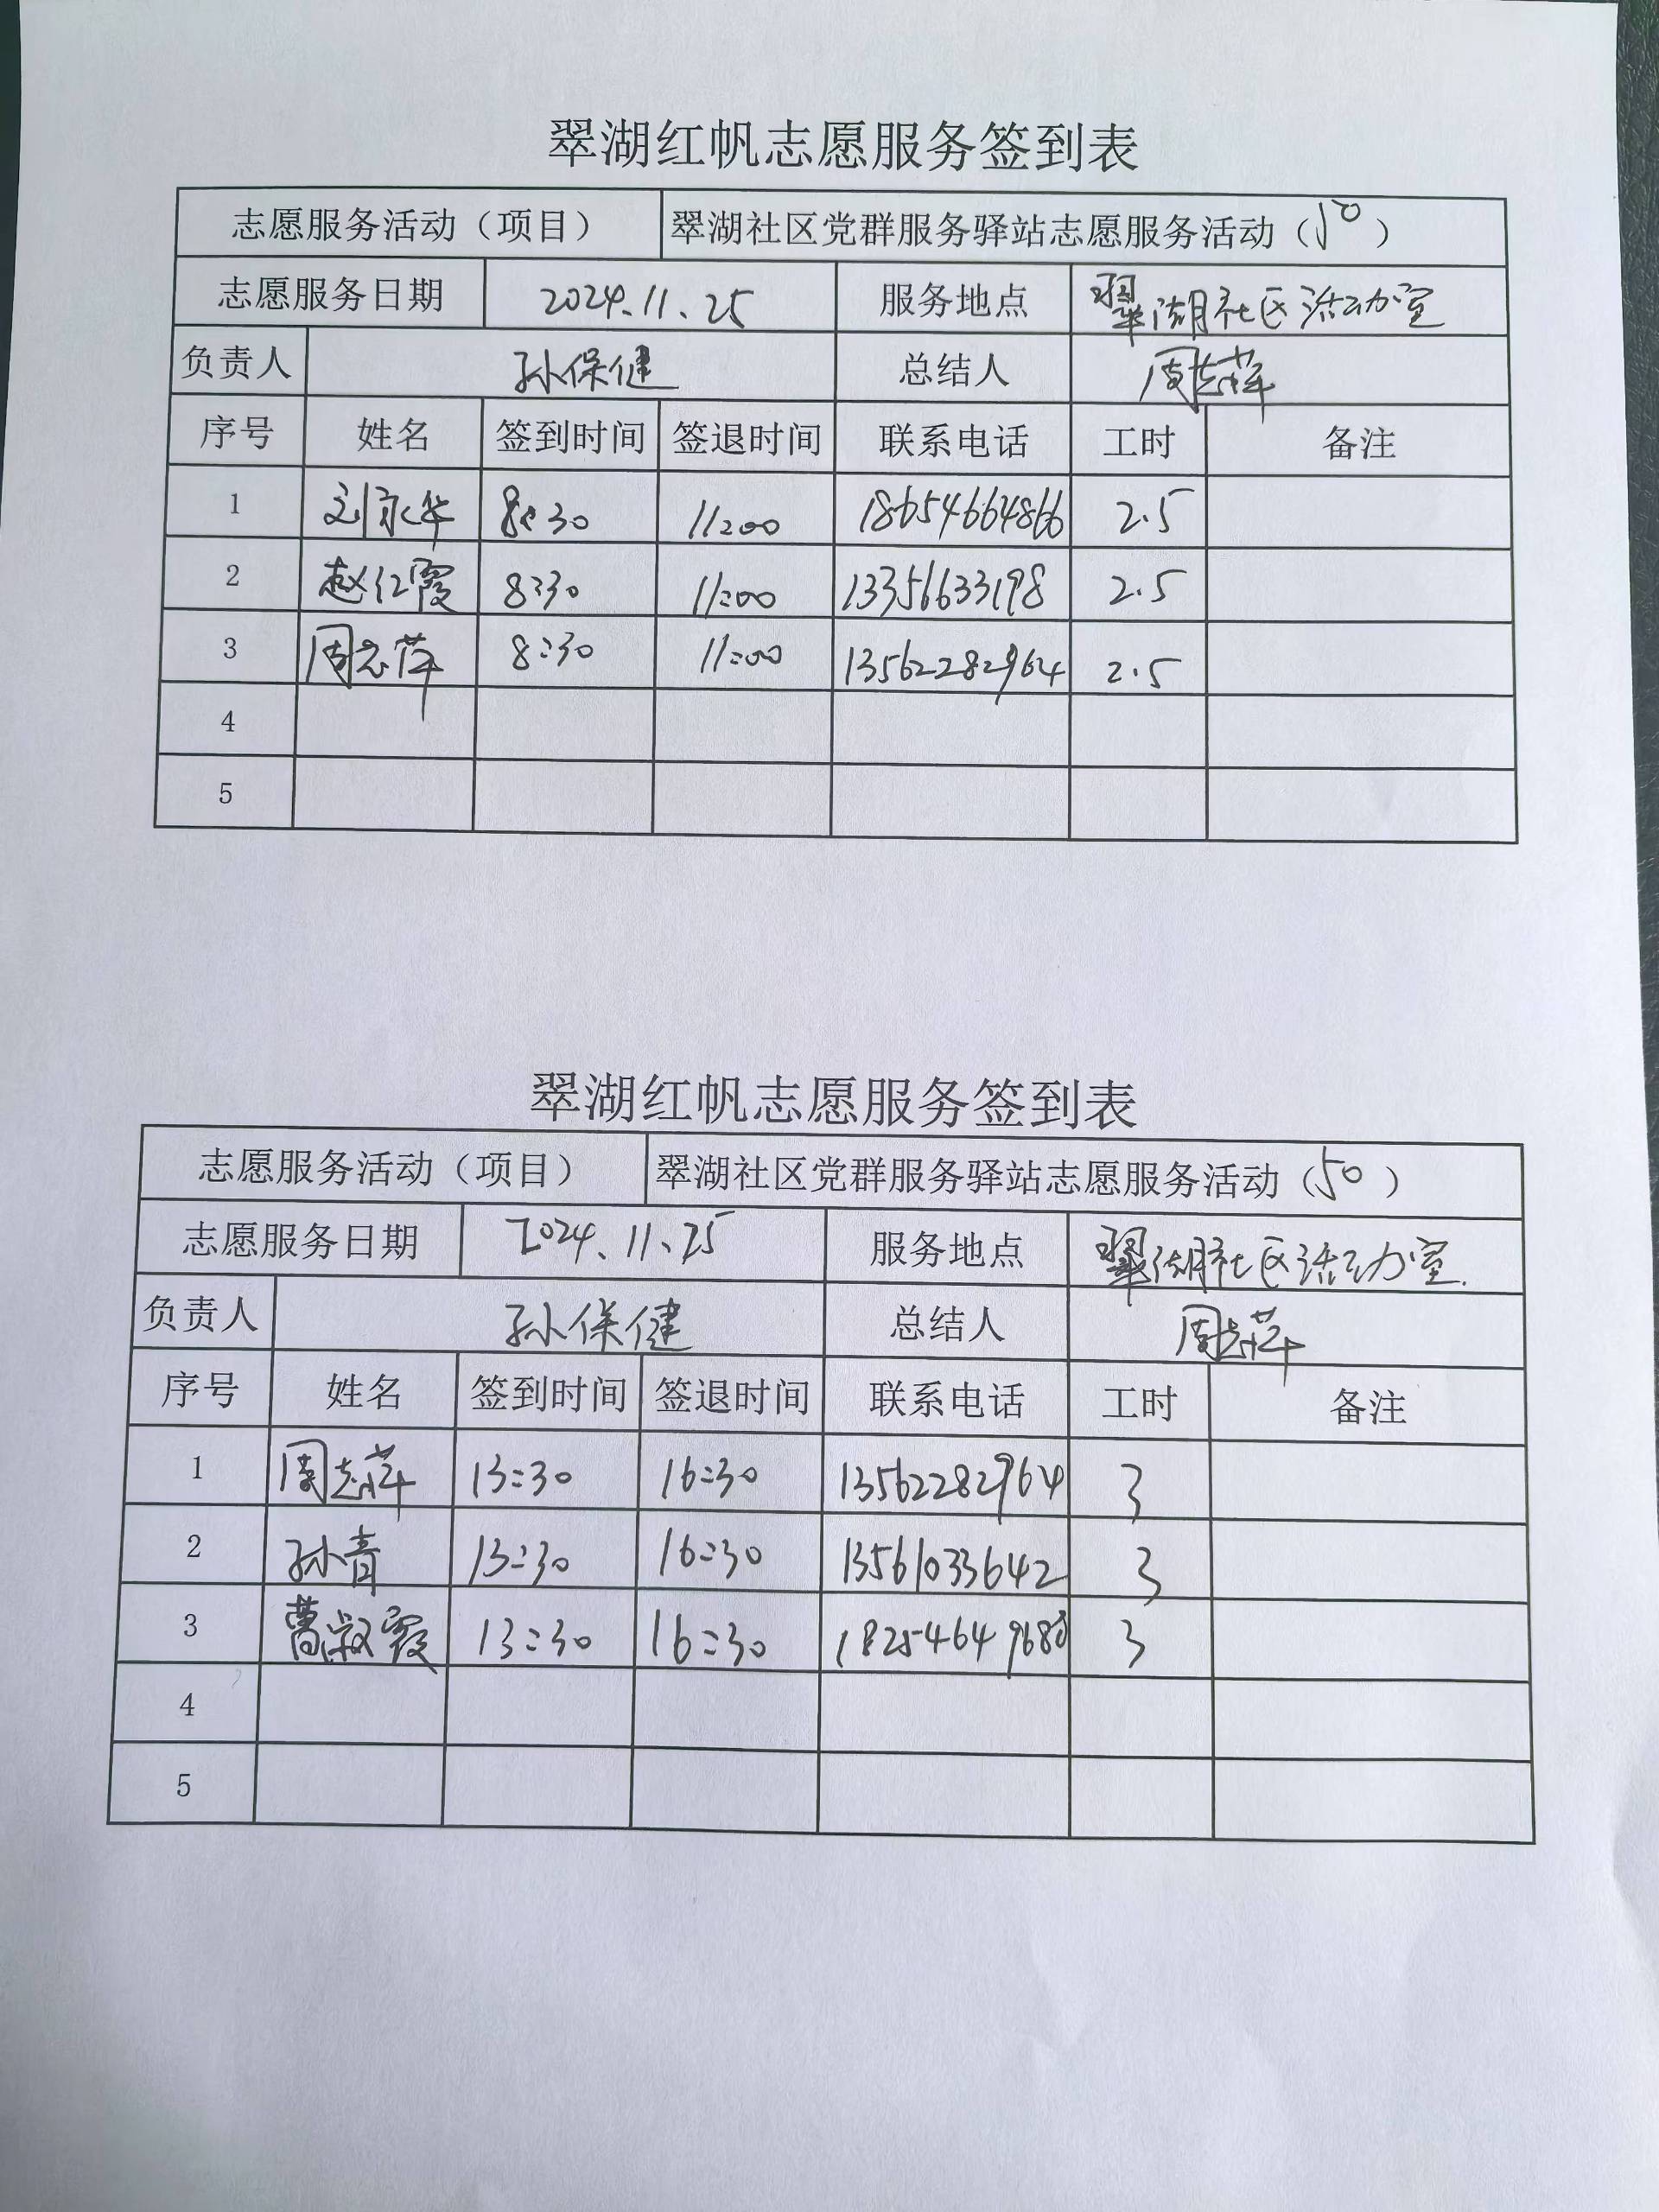 翠湖红帆志愿服务签到表
志愿服务活动（项目） 翠湖社区党群服务驿站志愿服务活动（50）
志愿服务日期 2024.11.25 服务地点 翠湖社区活动室
负责人 孙保健 总结人 周志萍
序号 姓名 签到时间 签退时间 联系电话 工时 备注
1 刘永华 8:30 11:00 18654664866 2.5
2 赵红霞 8:30 11:00 13356633198 2.5
3 周志萍 8:30 11:00 13562282964 2.5
4
5
翠湖红帆志愿服务签到表
志愿服务活动（项目） 翠湖社区党群服务驿站志愿服务活动（50）
志愿服务日期 2024.11.25 服务地点 翠湖社区活动室.
负责人 孙保健 总结人 周志萍
序号 姓名 签到时间 签退时间 联系电话 工时 备注
1 周志萍 13:30 16:30 13562282964 3
2 孙青 13:30 16:30 13561033642 3
3 淑霞 13:30 16:30 3
4
5